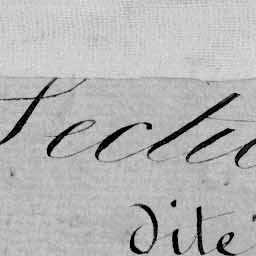 Sectio
dite